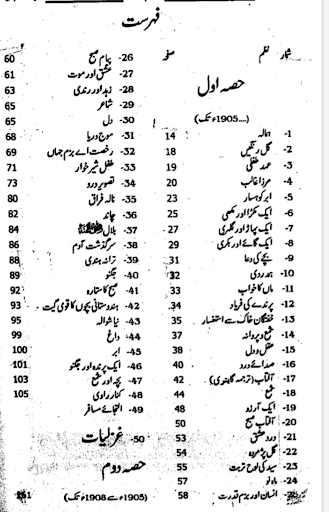 فہرست
شمار نظم صفحہ
حصہ اول
(....1905ء تک)
1- ہمالہ 14
2- گل رنگیں 18
3- عہد طفلی 19
4- مرزا غالب 20
5- ابر کوہسار 23
6- ایک مکڑا اور مکھی 25
7- ایک پہاڑ اور گلہری 27
8- ایک گائے اور بکری 29
9- بچے کی دعا 31
10- ہمدردی 32
11- ماں کا خواب 32
12- پرندے کی فریاد 34
13- خفتگان خاک سے استفسار 35
14- شمع و پروانہ 37
15- عقل و دل 38
16- صدائے درد 40
17- آفتاب (ترجمہ گایتری) 42
18- شمع 44
19- ایک آرزو 48
20- آفتاب صبح 50
21- درد عشق 53
22- گل پژمردہ 54
23- سید کی لوح تربت 55
24- ماہ نو 57
25- انسان اور بزم قدرت 58
26- پیام صبح 60
27- عشق اور موت 61
28- زہد اور رندی 63
29- شاعر 65
30- دل 65
31- موج دریا 68
32- رخصت اے بزم جہاں 69
33- طفل شیر خوار 71
34- تصویر درد 73
35- نالہ فراق 80
36- چاند 82
37- بلال 84
38- سرگذشت آدم 86
39- ترانہ ہندی 88
40- جگنو 89
41- صبح کا ستارہ 92
42- ہندوستانی بچوں کا قومی گیت 93
43- نیا شوالہ 95
44- داغ 99
45- ابر 100
46- ایک پرندہ اور جگنو 101
47- بچہ اور شمع 103
48- کنار راوی 105
49- التجائے مسافر
50- غزلیات
حصہ دوم
(1905ء سے 1908ء تک) 161